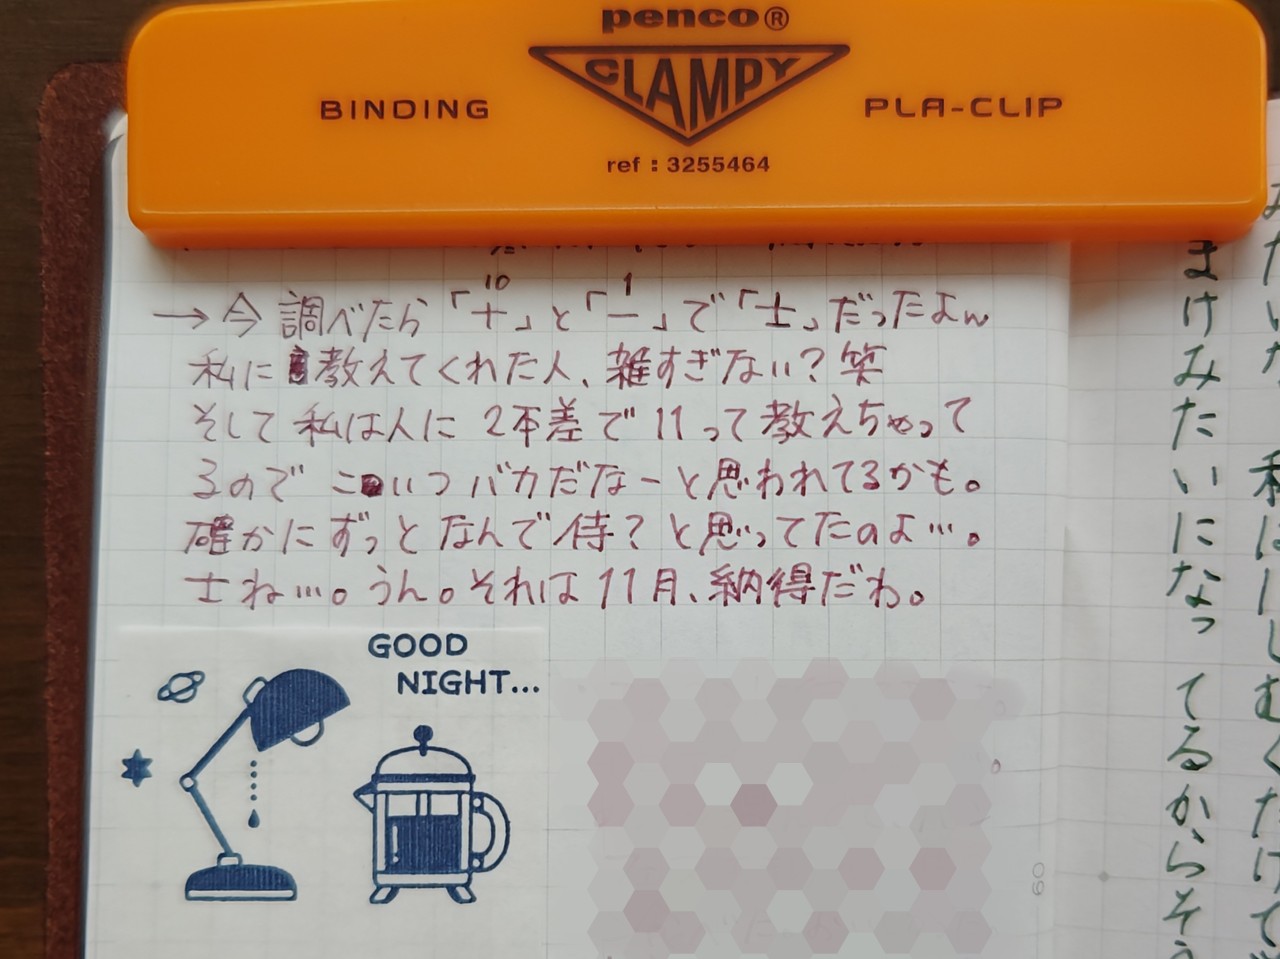 penco®
CLAMPY
BINDING
PLA-CLIP
ref : 3255464
10 1
→今調べたら「十」と「一」で「士」だったよん
私に教えてくれた人、雑すぎない?笑
そして私は人に2本差で11って教えちゃって
るのでこいつバカだなーと思われてるかも。
確かにずっとなんで侍?と思ってたのよ…。
士ね…。うん。それは11月、納得だわ。
GOOD
NIGHT...
60
まけみたいになってるからそう